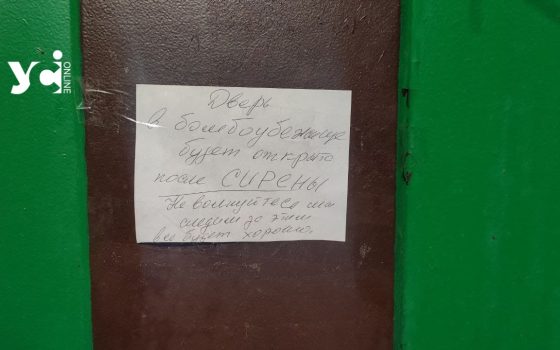 УСІ ONLINE
Дверь
в бомбоубежище
будет открыто
после СИРЕНЫ
Не волнуйтесь мы
следим за этим
все будет хорошо.